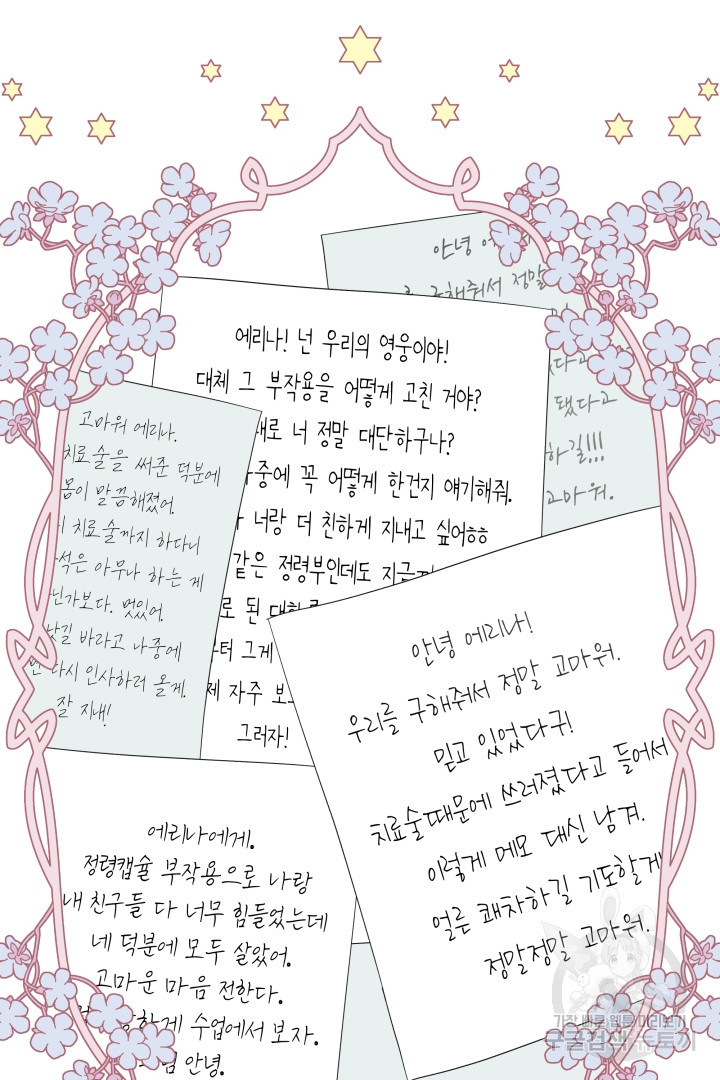 안녕
구해줘서 정말
됐다고
하길!!!
고마워.
에리나! 넌 우리의 영웅이야!
대체 그 부작용을 어떻게 고친 거야?
너 정말 대단하구나?
꼭 어떻게 한건지 얘기해줘.
너랑 더 친하게 지내고 싶어ㅎㅎ
같은 정령부인데도
된
그게
자주
그러자!
고마워 에리나.
치료술을 써준 덕분에
몸이 말끔해졌어.
치료술까지 하다니
아무나 하는 게
멋있어.
바라고 나중에
다시 인사하러 올게.
잘 지내!
안녕 에리나!
우리를 구해줘서 정말 고마워.
믿고 있었다구!
치료술때문에 쓰러졌다고 들어서
이렇게 메모 대신 남겨.
얼른 쾌차하길 기도할게
정말정말 고마워.
에리나에게.
정령캡슐 부작용으로 나랑
내 친구들 다 너무 힘들었는데
네 덕분에 모두 살았어.
고마운 마음 전한다.
수업에서 보자.
안녕.
가장 빠른 웹툰 미리보기
구글검색 뉴토끼